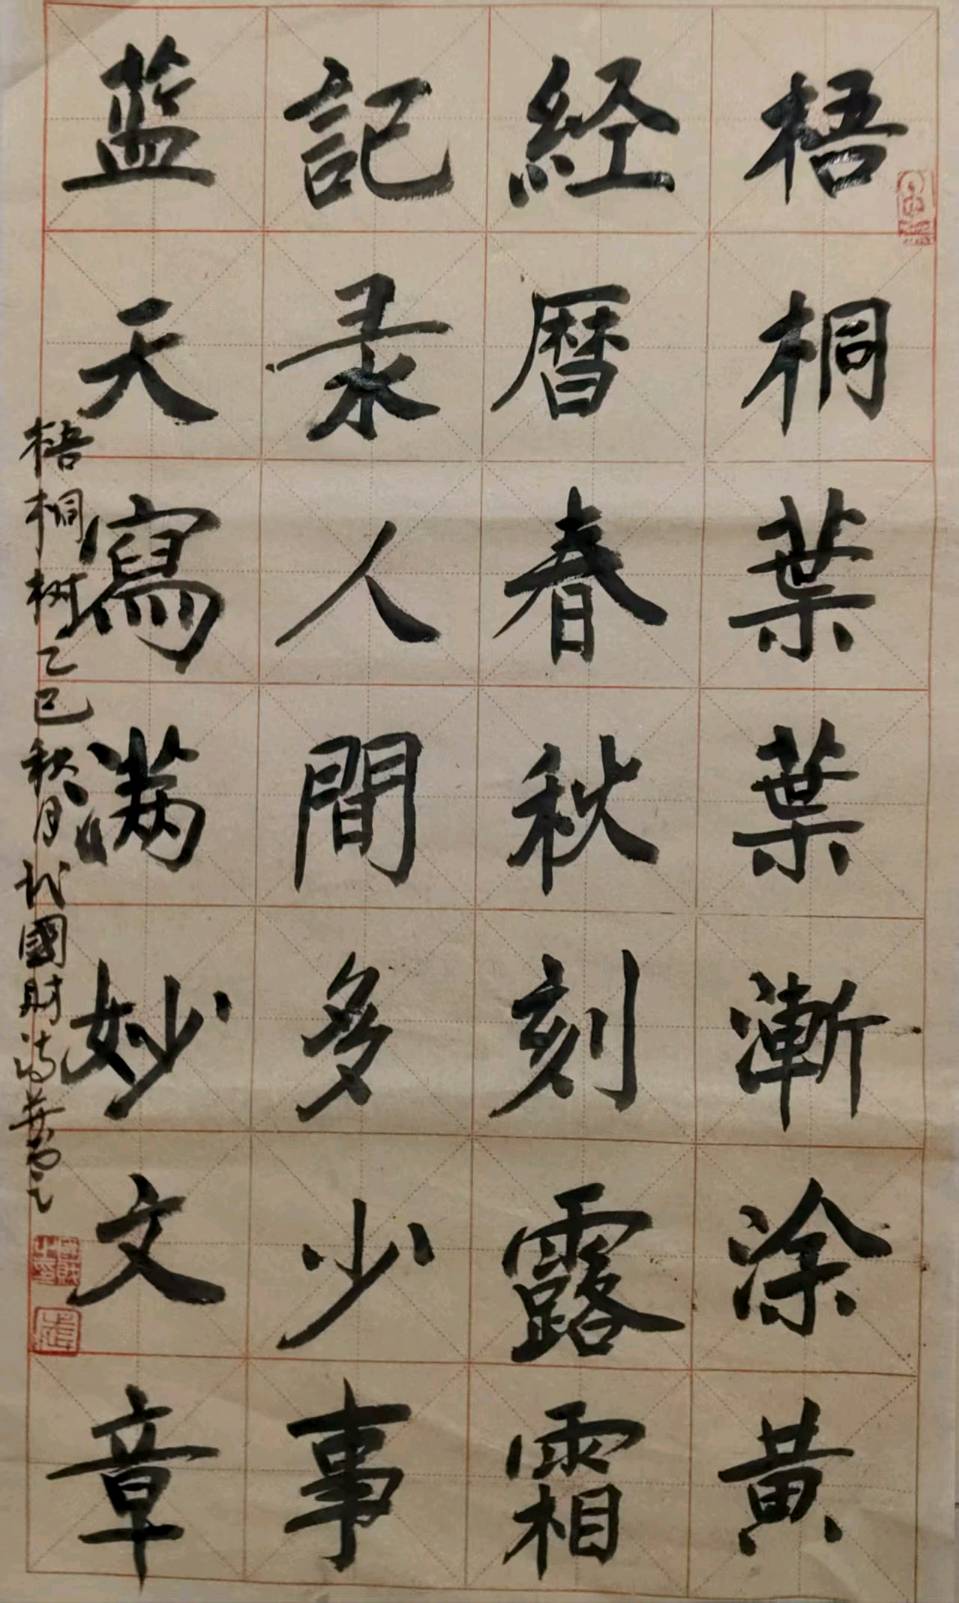 梧桐葉葉漸涂黄
経暦春秋刻露霜
記录人間多少事
蓝天寫满妙文章
梧桐树乙巳秋月武國財詩並書